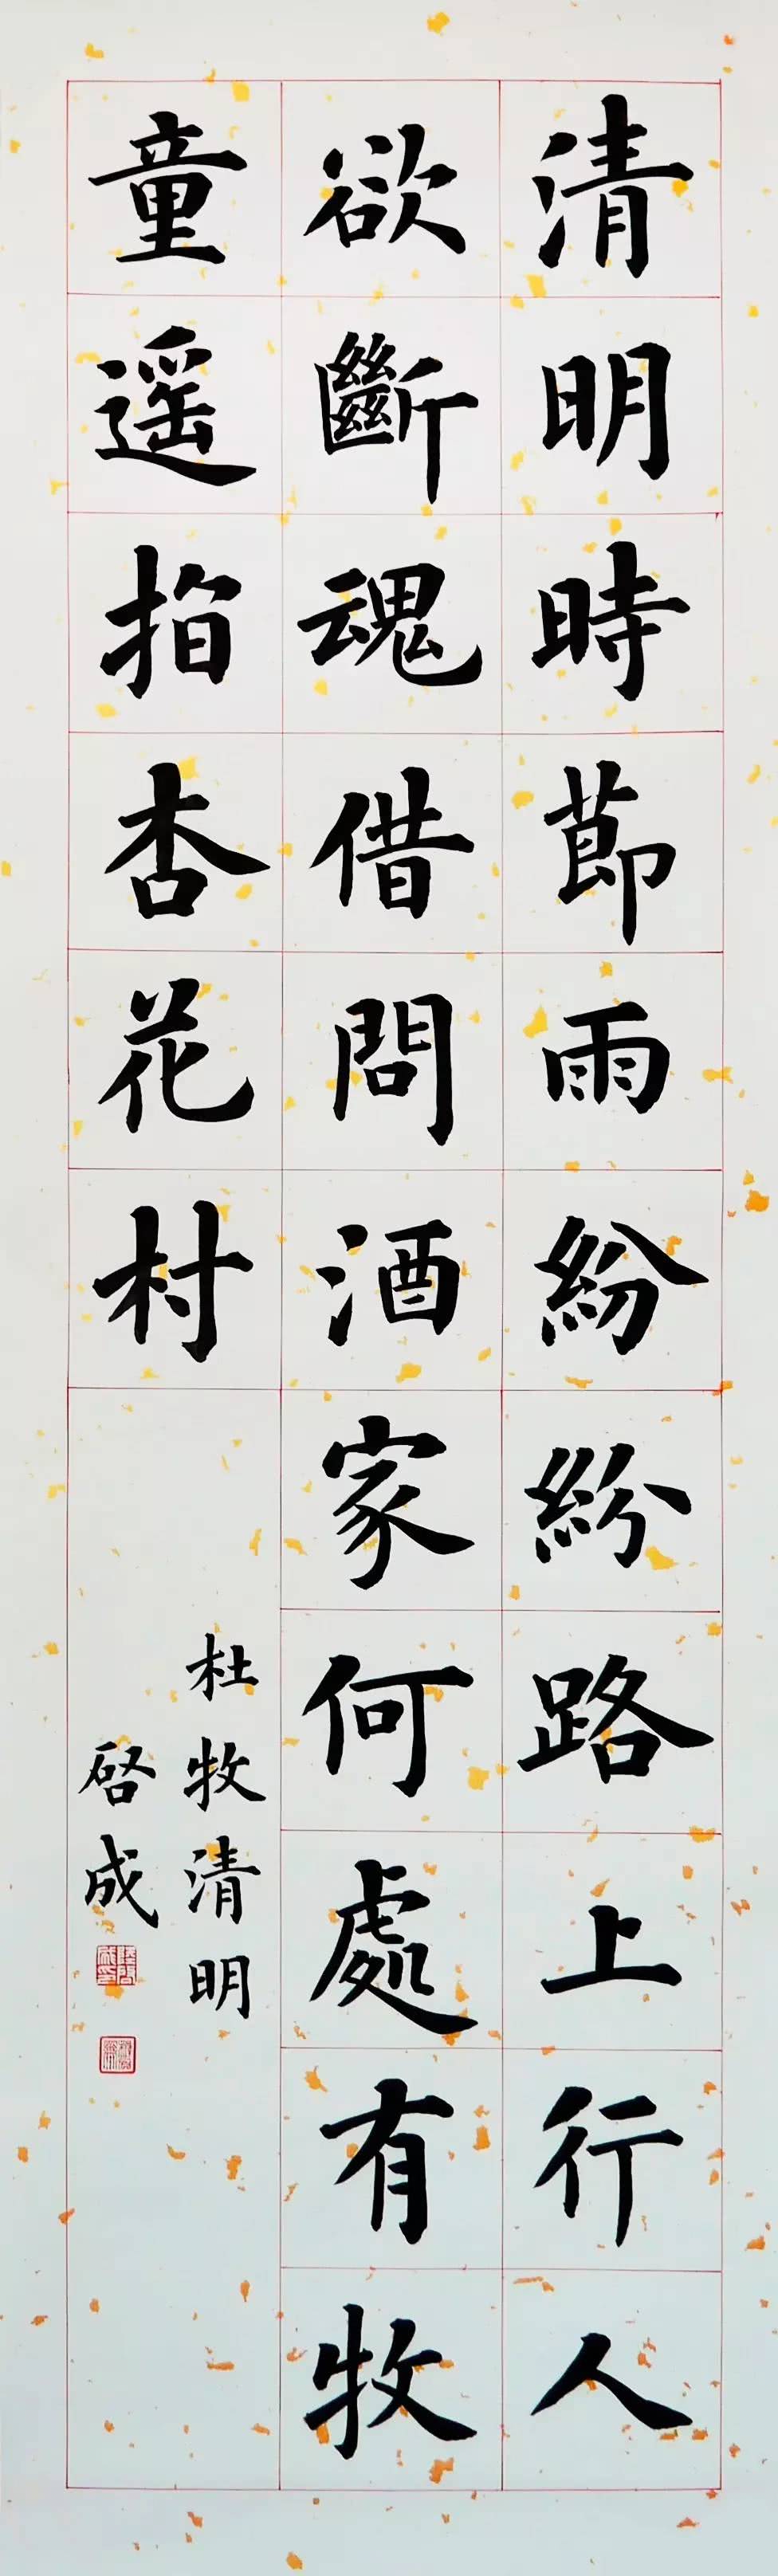 清明時節雨紛紛路上行人
欲斷魂借問酒家何處有牧
童遥指杏花村
杜牧清明
啓成